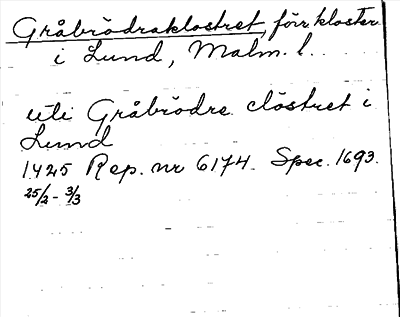 Gråbrödraklostret, förr kloster
i Lund, Malm. l.
uti Gråbrödre clöstret i
Lund
1425 Rep. nr 6174. Spec. 1693.
25/2 - 3/3